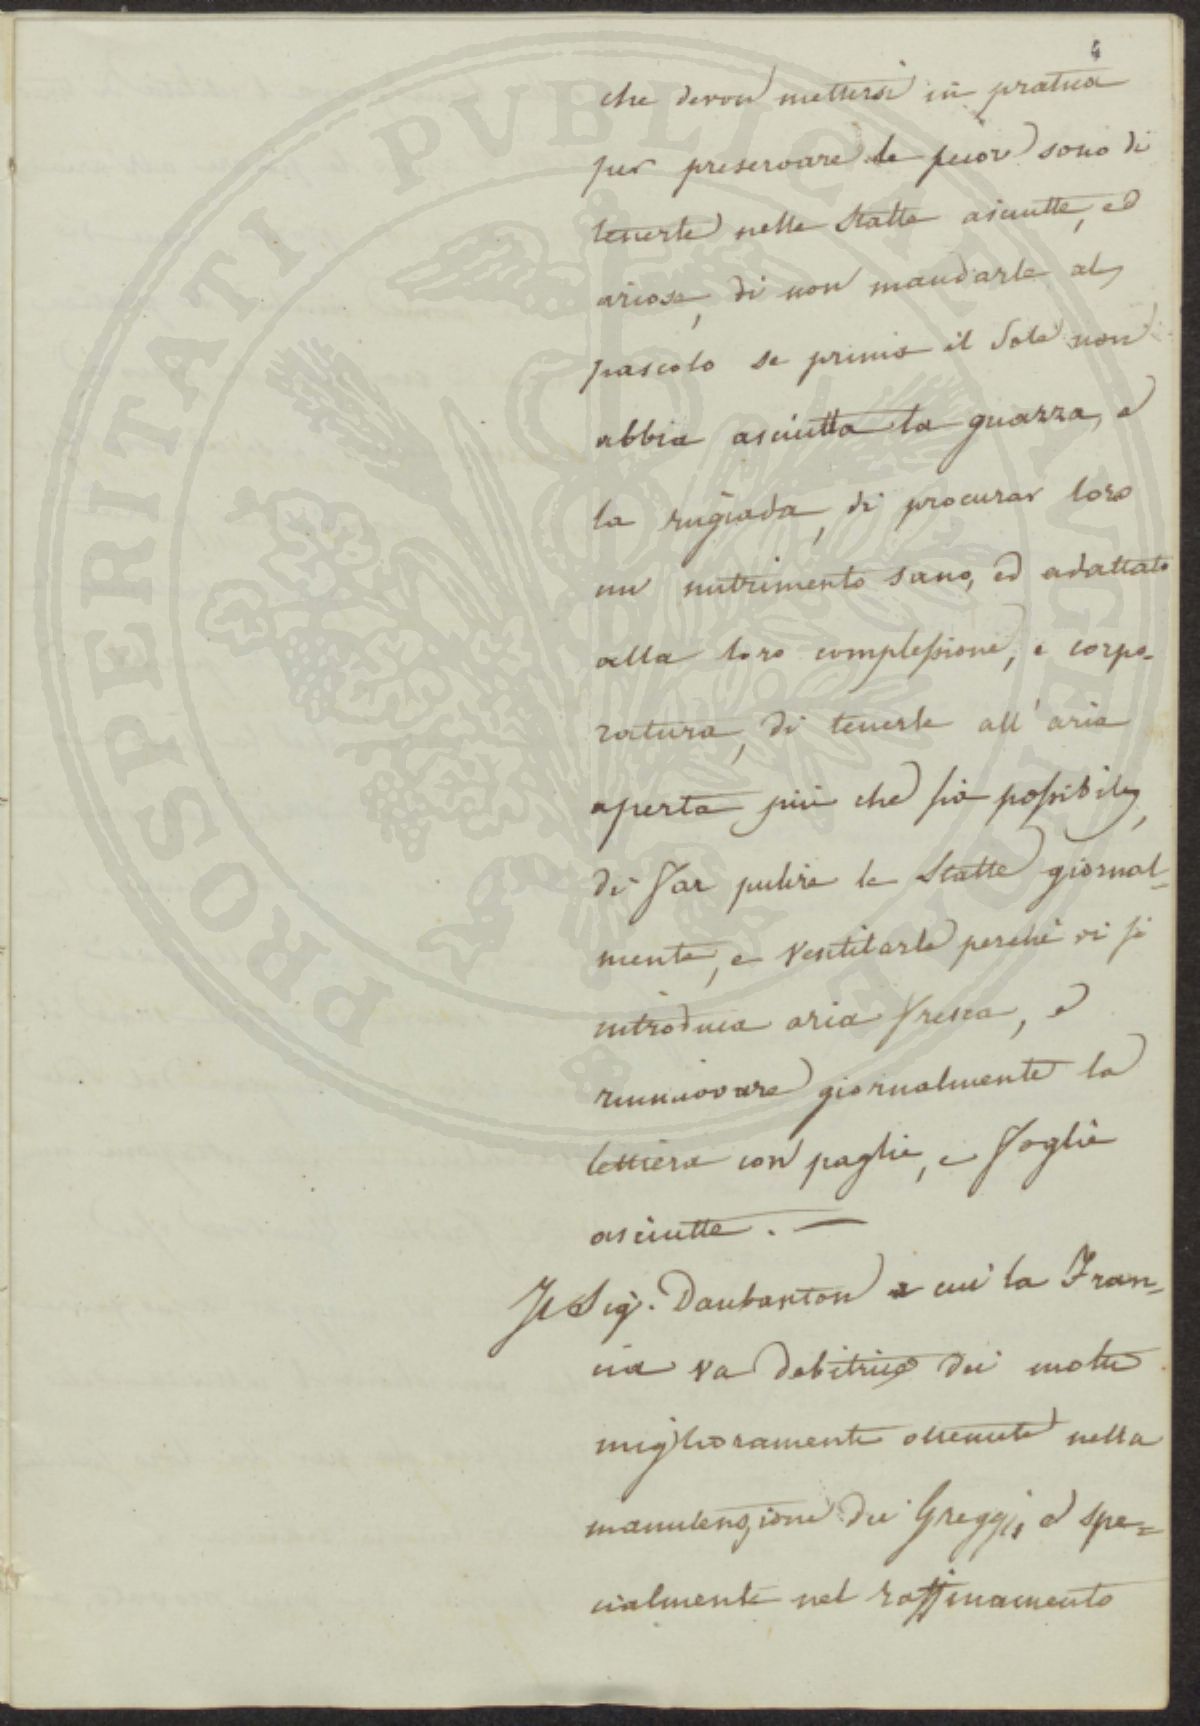 4
che devon mettersi in pratica
per preservare le pecore sono di
tenerle nelle Stalle asciutte, ed
ariose, di non mandarle al
pascolo se prima il Sole non
abbia asciutta la guazza, e
la rugiada, di procurar loro
un nutrimento sano, ed adattato
alla loro complessione, e corpo-
ratura, di tenerle all'aria
aperta più che sia possibile,
di far pulire le Stalle giornal-
mente, e ventilarle perchè vi si
introduca aria fresca, e
rinnuovare giornalmente la
lettiera con paglie, e foglie
asciutte. —
Il Sig. Daubanton a cui la Fran-
cia va debitrice dei molti
miglioramenti ottenuti nella
manutenzione dei Greggi, e spe-
cialmente nel raffinamento
PROSPERITATI PUBLICAE AUGENDAE